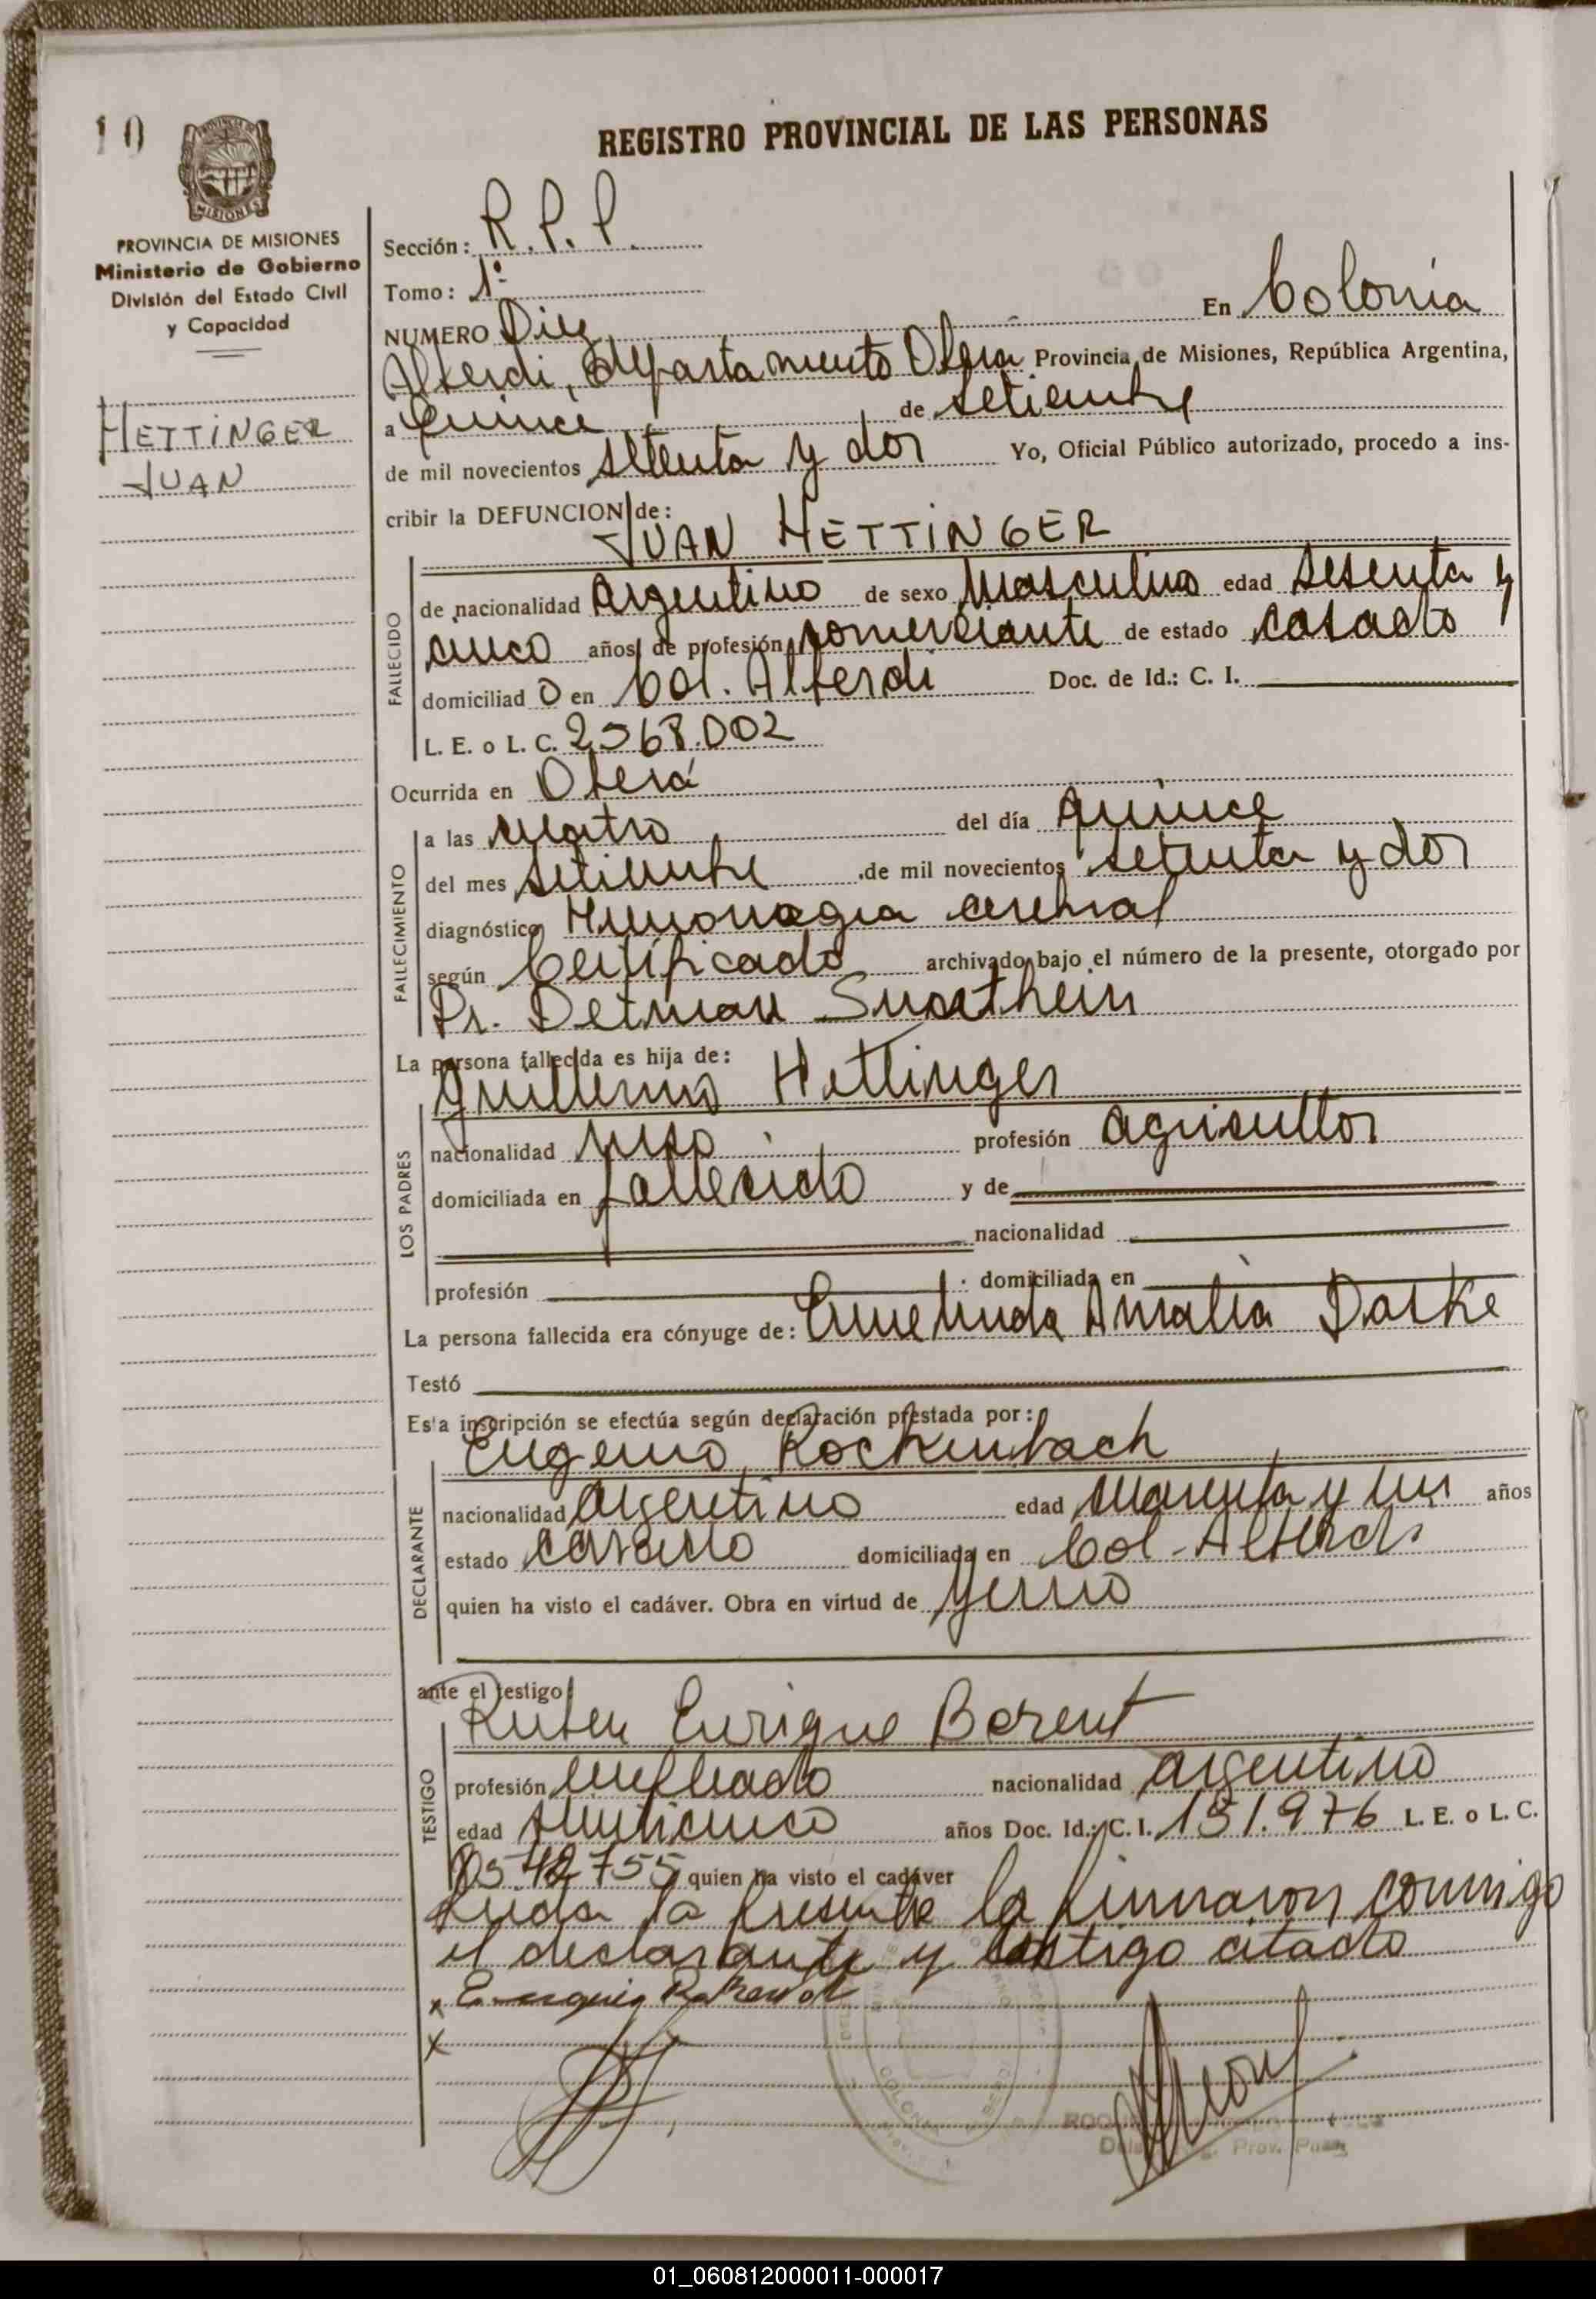 10
REGISTRO PROVINCIAL DE LAS PERSONAS
PROVINCIA DE MISIONES
Ministerio de Gobierno
División del Estado Civil
y Capacidad
HETTINGER
JUAN
Sección: R.P.P.
Tomo: 1º
NUMERO Diez En Colonia
Alberdi, departamento Oberá Provincia de Misiones, República Argentina,
a quince de setiembre
de mil novecientos setenta y dos Yo, Oficial Público autorizado, procedo a ins-
cribir la DEFUNCION de:
JUAN HETTINGER
FALLECIDO
de nacionalidad Argentino de sexo masculino edad sesenta y
cinco años de profesión comerciante de estado casado
domiciliad o en Col. Alberdi Doc. de Id.: C. I.
L. E. o L. C. 2568.002
Ocurrida en Oberá
FALLECIMIENTO
a las cuatro del día quince
del mes setiembre de mil novecientos setenta y dos
diagnóstico Hemorragia cerebral
según Certificado archivado bajo el número de la presente, otorgado por
Dr. Detman
La persona fallecida es hija de:
Guillermo Hettinger
LOS PADRES
nacionalidad ruso profesión agricultor
domiciliada en fallecido y de
nacionalidad
profesión domiciliada en
La persona fallecida era cónyuge de: Ermelinda Amalia Darke
Testó
Esta inscripción se efectúa según declaración prestada por:
Eugenio Rockenbach
DECLARANTE
nacionalidad argentino edad cuarenta y años
estado casado domiciliada en Col. Alberdi
quien ha visto el cadáver. Obra en virtud de yerno
ante el testigo:
Ruben Enrique Berent
TESTIGO
profesión empleado nacionalidad argentino
edad veinticinco años Doc. Id.: C. I. 151.976 L. E. o L. C.
8542755 quien ha visto el cadáver
Leída la presente la firmaron conmigo
el declarante y testigo citado
x
x
01_060812000011-000017